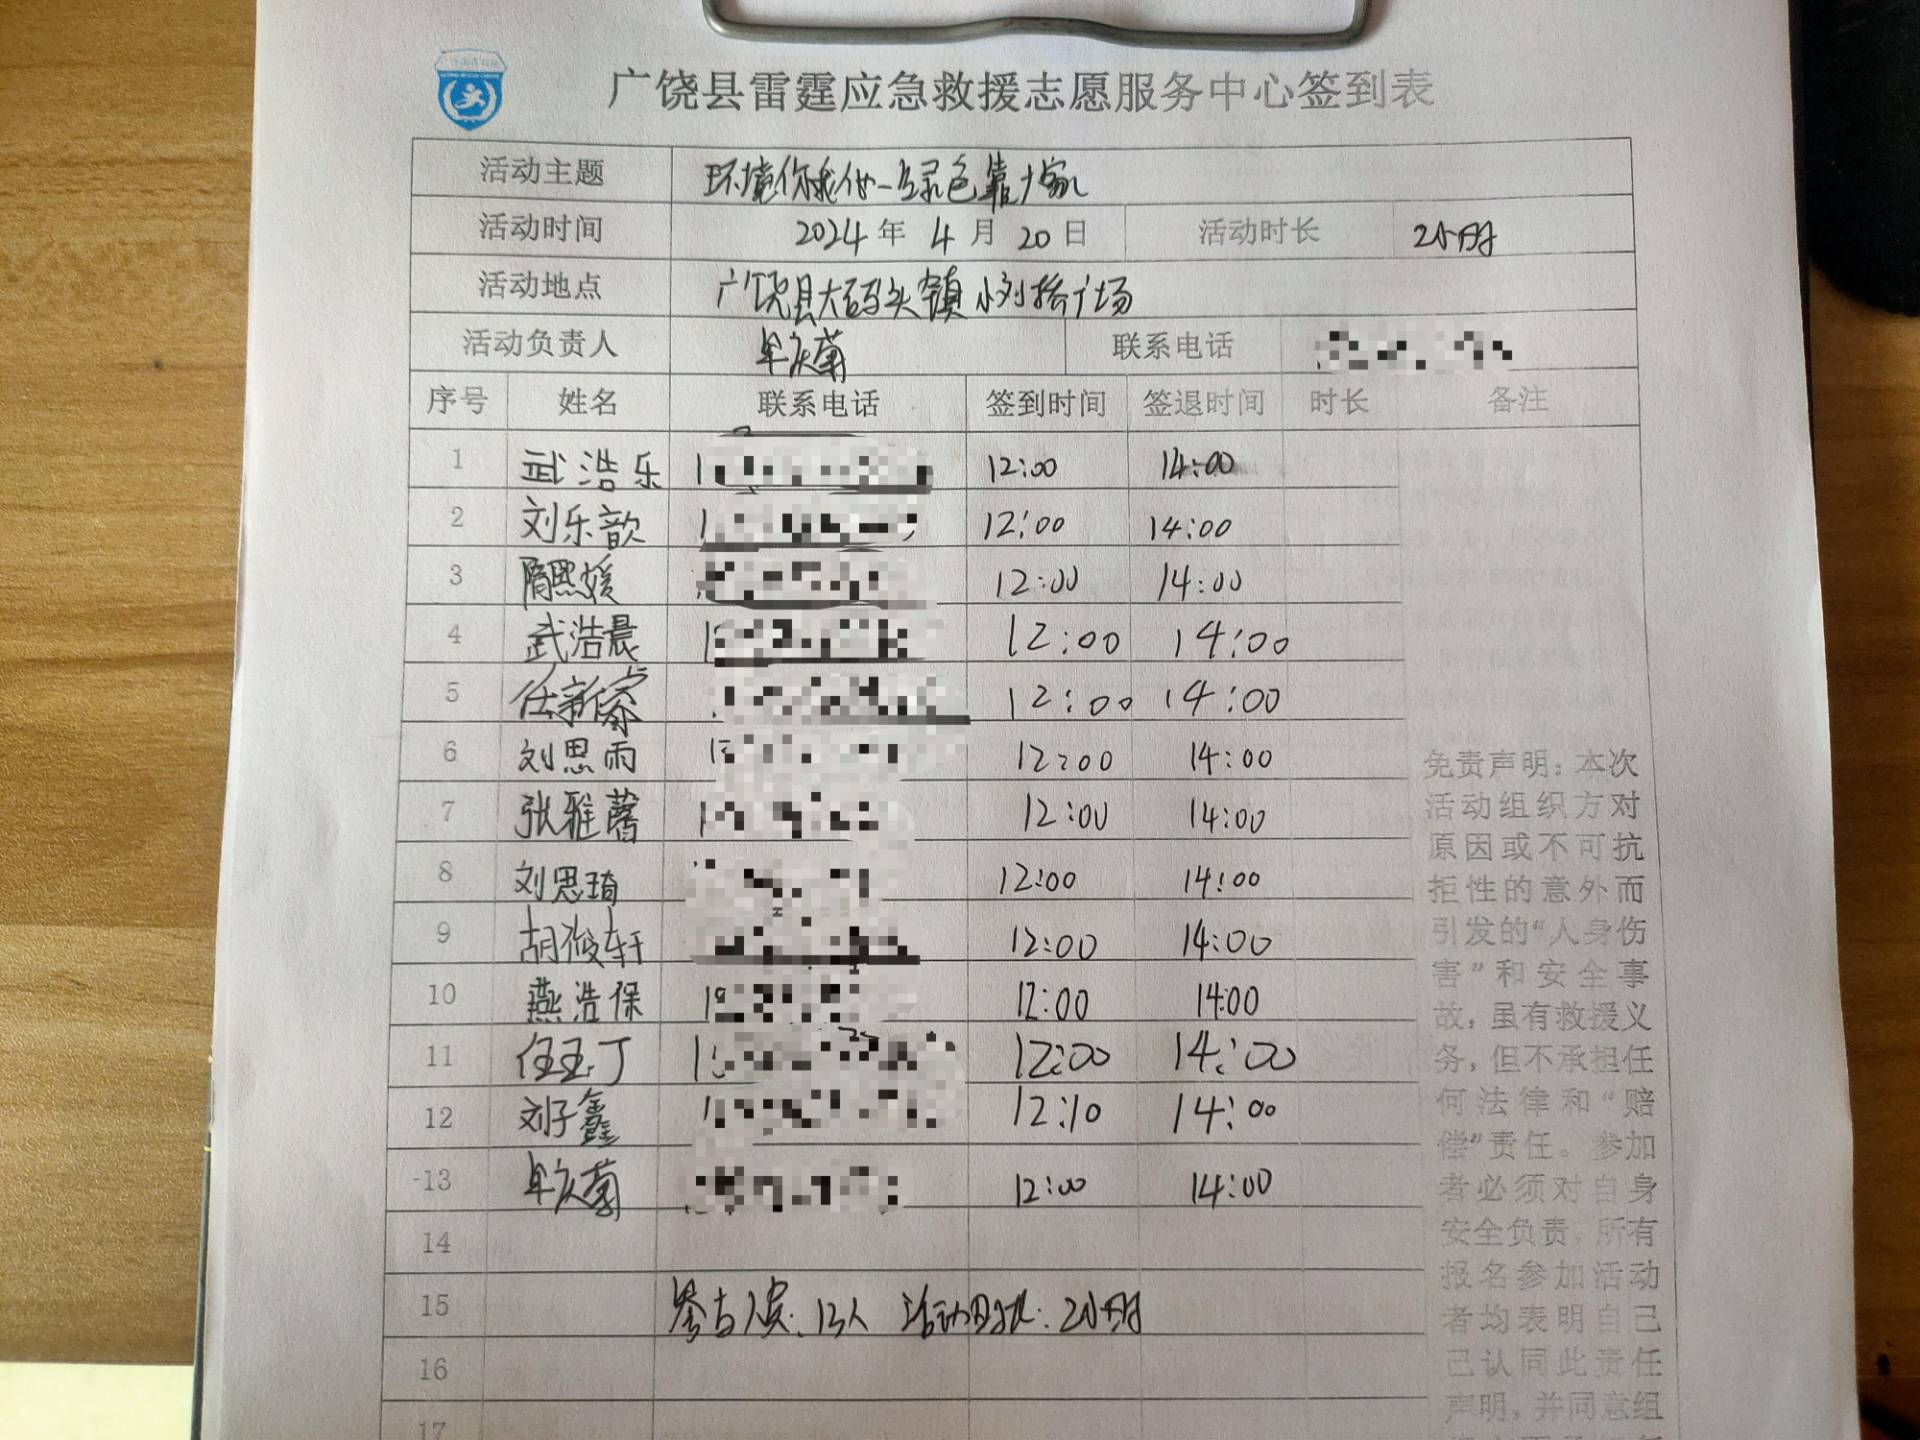 广饶县雷霆应急救援志愿服务中心签到表
活动主题 环境你我他一绿色靠大家
活动时间 2024年 4月 20日 活动时长 2小时
活动地点 广饶县大码头镇小刘桥广场
活动负责人 牟庆菊 联系电话
序号 姓名 联系电话 签到时间 签退时间 时长 备注
1 武浩乐 1 12:00 14:00
2 刘乐歆 1 12:00 14:00
3 隋熙媛 12:00 14:00
4 武浩晨 1 12:00 14:00
5 任新 12:00 14:00
6 刘思雨 1 12:00 14:00
7 张雅馨 1 12:00 14:00
8 刘思琦 12:00 14:00
9 胡俊轩 12:00 14:00
10 燕浩保 1 12:00 14:00
11 任玉丁 1 12:00 14:00
12 刘子鑫 1 12:10 14:00
13 牟庆菊 12:00 14:00
14
15 参与人员:13人 活动时长:2小时
16
17
免责声明:本次
活动组织方对
原因或不可抗
拒性的意外而
引发的“人身伤
害”和安全事
故,虽有救援义
务,但不承担任
何法律和“赔
偿”责任。参加
者必须对自身
安全负责,所有
报名参加活动
者均表明自己
己认同此责任
声明,并同意组